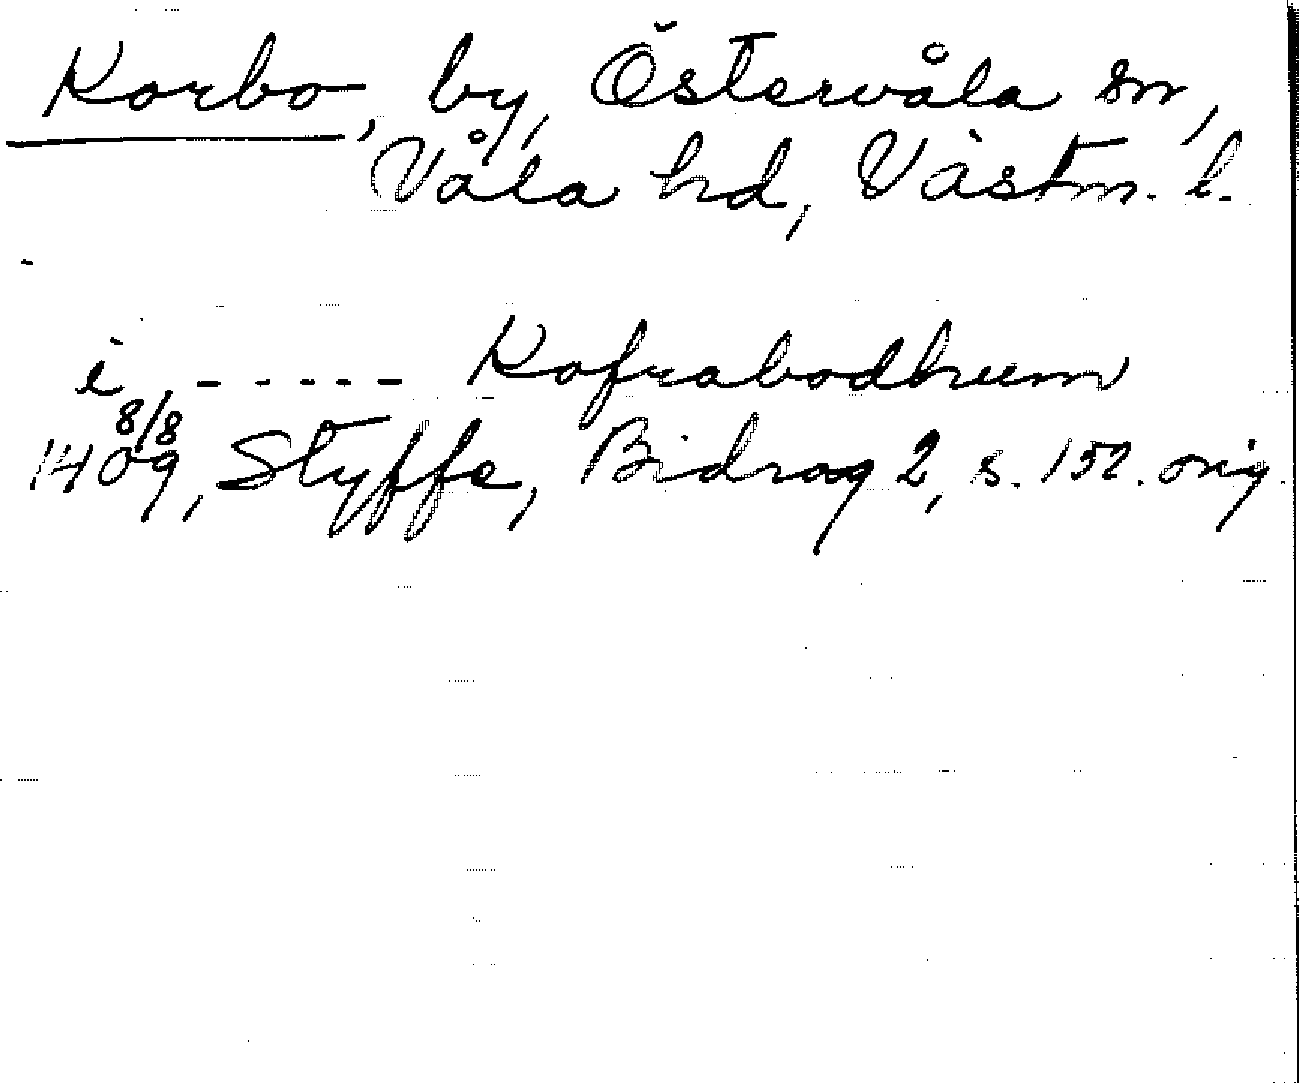 Korbo, by, Östervåla sn,
Våla hd, Västm. l.
i ----- Kofrabodhum
8/8
1409, Styffe, Bidrag 2, s. 152. orig.